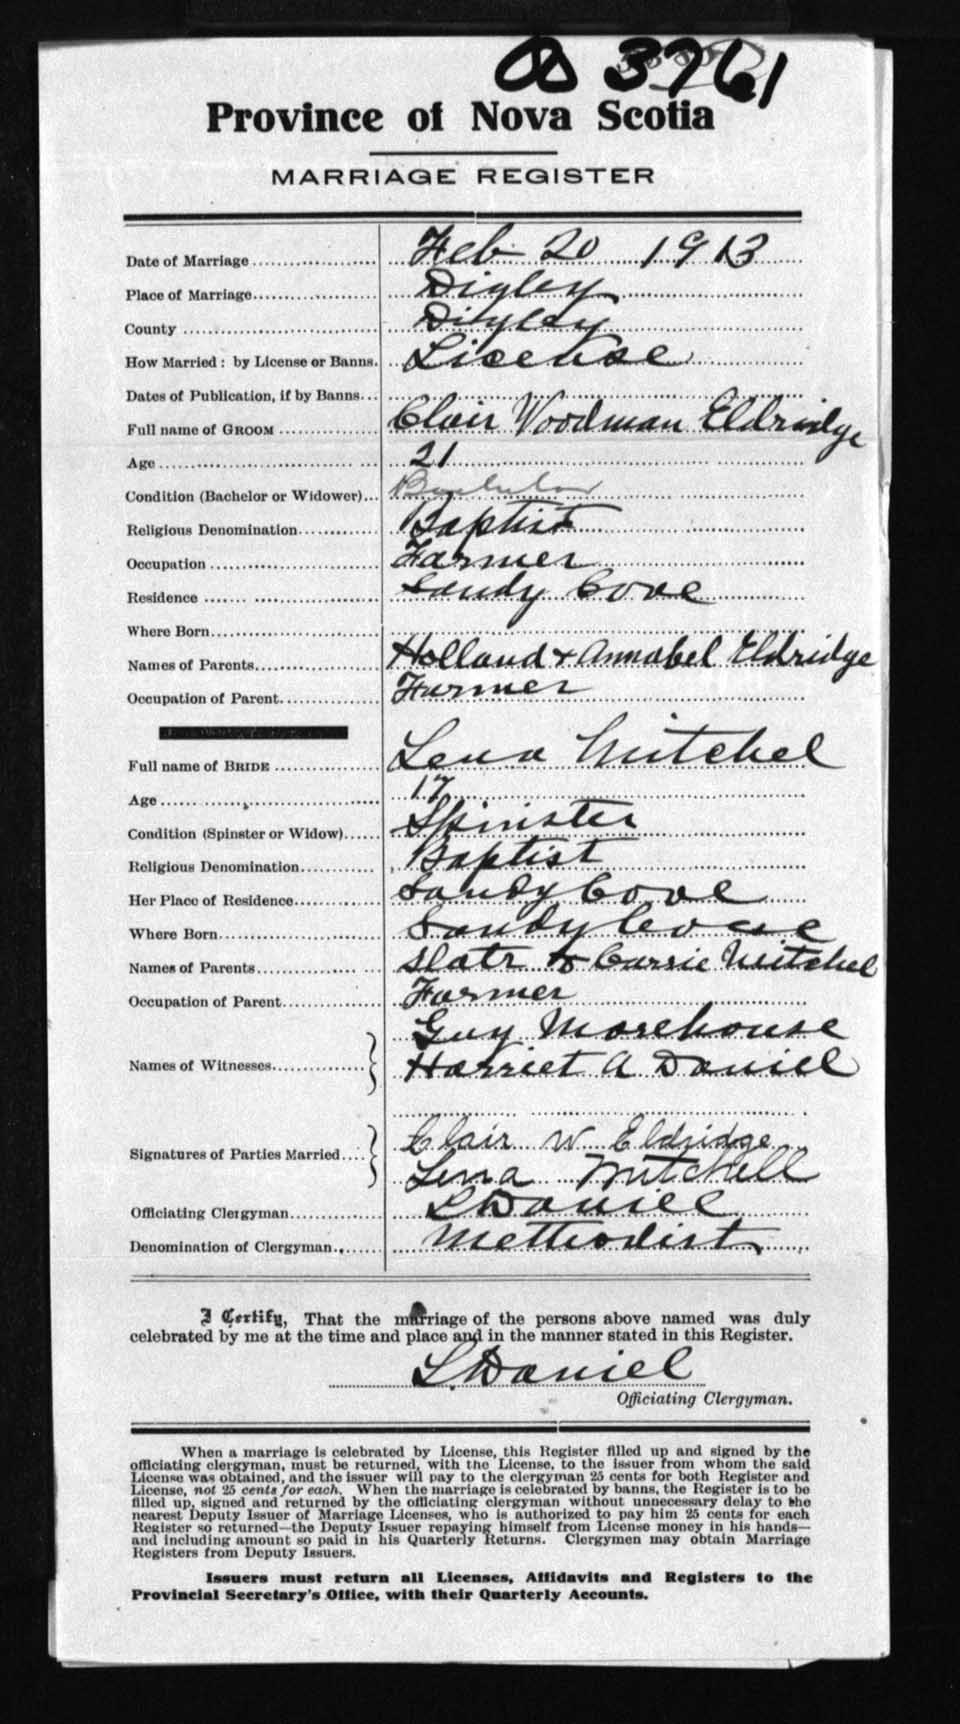 3761
Province of Nova Scotia
MARRIAGE REGISTER
Date of Marriage Feb 20 1913
Place of Marriage Digby
County Digby
How Married: by License or Banns. License
Dates of Publication, if by Banns
Full name of GROOM Clair Woodman Eldridge
Age 21
Condition (Bachelor or Widower) Bachelor
Religious Denomination Baptist
Occupation Farmer
Residence Sandy Cove
Where Born
Names of Parents Holland & Annabel Eldridge
Occupation of Parent Farmer
Full name of BRIDE Lena Mitchel
Age 17
Condition (Spinster or Widow) Spinster
Religious Denomination Baptist
Her Place of Residence Sandy Cove
Where Born Sandy Cove
Names of Parents & Carrie Mitchel
Occupation of Parent Farmer
Guy Morehouse
Names of Witnesses Harriet A Daniel
Clair W Eldridge
Signatures of Parties Married
Lena Mitchell
Officiating Clergyman Daniel
Denomination of Clergyman Methodist
I Certify, That the marriage of the persons above named was duly
celebrated by me at the time and place and in the manner stated in this Register.
Daniel
Officiating Clergyman.
When a marriage is celebrated by License, this Register filled up and signed by the
officiating clergyman, must be returned, with the License, to the issuer from whom the said
License was obtained, and the issuer will pay to the clergyman 25 cents for both Register and
License, not 25 cents for each. When the marriage is celebrated by banns, the Register is to be
filled up, signed and returned by the officiating clergyman without unnecessary delay to the
nearest Deputy Issuer of Marriage Licenses, who is authorized to pay him 25 cents for each
Register so returned—the Deputy Issuer repaying himself from License money in his hands—
and including amount so paid in his Quarterly Returns. Clergymen may obtain Marriage
Registers from Deputy Issuers.
Issuers must return all Licenses, Affidavits and Registers to the
Provincial Secretary's Office, with their Quarterly Accounts.